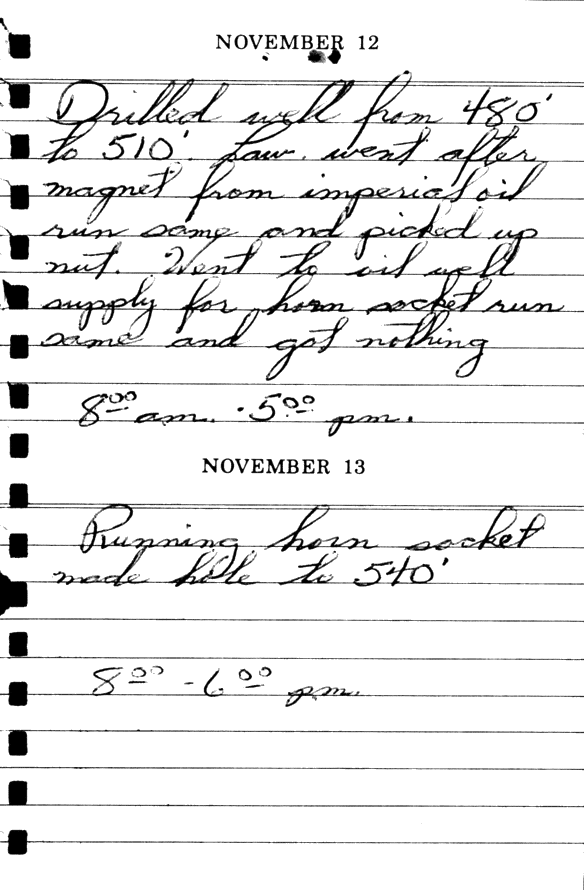 NOVEMBER 12
Drilled well from 480'
to 510'. Law. went after
magnet from imperial oil
run same and picked up
nut. Went to oil well
supply for horn socket run
same and got nothing
8 00 am. - 5 00 pm.
NOVEMBER 13
Running horn socket
made hole to 540'
8 00 - 6 00 pm.